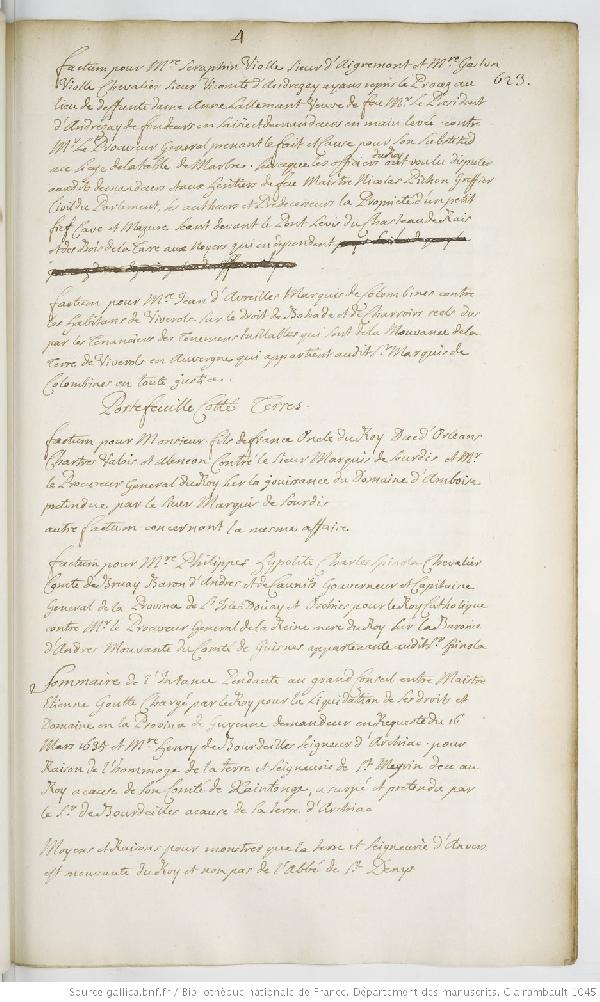 4
623.
factum pour Mre Seraphin Violle Sieur d'Aigremont et Mre Gaston
Violle Chevalier Sieur Vicomte d'Andrezay ayans repris le Procez au
lieu de deffunte dame Anne Lallemant Veuve de feu Mr le President
d'Andrezay deffendeurs en saisie et demandeurs en main levée contre
Mr Le Procureur General prenant le fait et cause pour son substitud
au siege de la table de Marbre. Sur ce que les officiers du Roy ont voulu disputer
ausdits demandeurs et aux heritiers de feu Maistre Nicolas Pichon Greffier
Civil du Parlement, les autheurs et Predecesseurs la Proprieté d'un petit
fief Cave et Mazure Seant devant le Pont Levis du Chasteau de Rais
et des Bois de la Tarre aux Noyers qui en dependent
factum pour Mre Jean d'Avreilles Marquis de Colombines contre
les habitans de Viverols sur le droit de Bahade et de charroirs reels dus
par les Tenanciers des Tenemens Taillables qui sont de la Mouvance de la
Terre de Viverols en Auvergne qui appartient audit Sr Marquis de
Colombines en toute justice.
Portefeuille Cotté Terres.
factum pour Monsieur fils de france Oncle du Roy Duc d'Orleans
Chartres Valois et Alencon Contre le Sieur Marquis de Sourdis et Mr
le Procureur General du Roy Sur la jouissance du Domaine d'Amboise
pretendue par le Sieur Marquis de Sourdis
autre factum concernant la mesme affaire
factum pour Mre Philippes Hypolite Charles Spinola Chevalier
Comte de Bruay Baron d'Andres et de Gouverneur et Capitaine
General de la Province de L'Isle Douay et Orchies pour le Roy Catholique
contre Mr le Procureur General de la Reine mere du Roy Sur la Baronie
d'Andres Mouvante du Comté de Guisnes appartenante audit Sr Spinola
Sommaire de l'Instance Pendante au grand Conseil entre Maistre
Etienne Goutte Chargé par le Roy pour la Liquidation de ses droits et
Domaine en la Province de Guyenne demandeur en Requeste du 16
Mars 1635 et Mre Henry de Bourdeilles Seigneur d'Archiac pour
Raison de l'hommage de la terre et Seigneurie de St Megrin deu au
Roy a cause de son Comté de Xaintonge, usurpé et pretendu par
le Sr de Bourdeilles a cause de la terre d'Archiac
Moyens et Raisons pour monstrer que la terre et Seigneurie d'Anvers
est mouvante du Roy et non pas de l'Abbé de St Denys
Source gallica.bnf.fr / Bibliothèque nationale de France. Département des manuscrits. Clairambault 1045